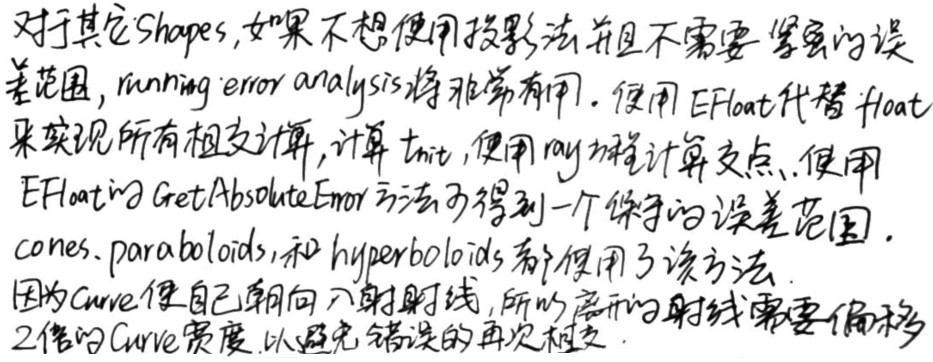 对于其它Shapes,如果不想使用投影法并且不需要紧密的误
差范围, running error analysis将非常有用. 使用 EFloat代替 float
来实现所有相交计算,计算 thit,使用ray方程计算交点.使用
EFloat的 GetAbsoluteError方法可得到一个保守的误差范围.
cones.paraboloids,和hyperboloids都使用了该方法.
因为Curve使自己朝向入射射线,所以离开的射线需要偏移
2倍的Curve宽度,以避免错误的再次相交.